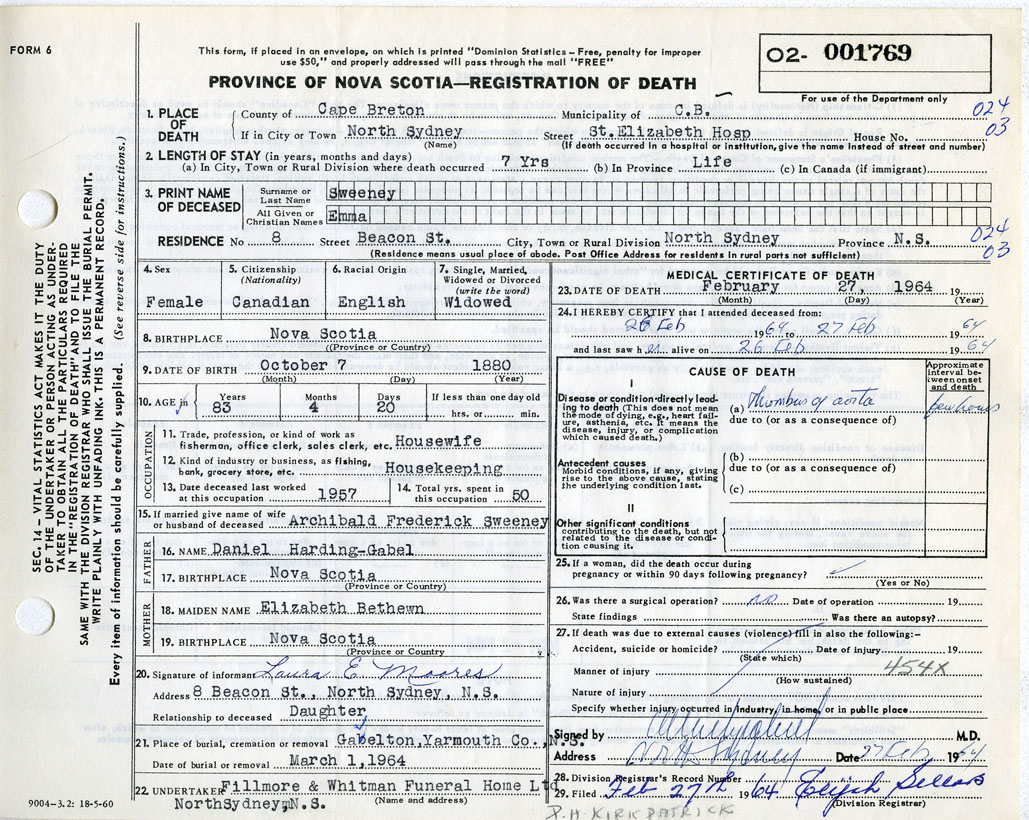 FORM 6
This form, if placed in an envelope, on which is printed "Dominion Statistics – Free, penalty for improper
use $50," and properly addressed will pass through the mail "FREE"
PROVINCE OF NOVA SCOTIA—REGISTRATION OF DEATH
02- 001769
For use of the Department only
024
03
1. PLACE OF DEATH { County of Cape Breton Municipality of C.B.
If in City or Town North Sydney Street St.Elizabeth Hosp House No.
(Name) (If death occurred in a hospital or institution, give the name instead of street and number)
2. LENGTH OF STAY (in years, months and days)
(a) In City, Town or Rural Division where death occurred 7 Yrs (b) In Province Life (c) In Canada (if immigrant)
3. PRINT NAME OF DECEASED
Surname or Last Name Sweeney
All Given or Christian Names Emma
024
03
RESIDENCE No 8 Street Beacon St. City, Town or Rural Division North Sydney Province N.S.
(Residence means usual place of abode. Post Office Address for residents in rural parts not sufficient)
4. Sex Female
5. Citizenship (Nationality) Canadian
6. Racial Origin English
7. Single, Married, Widowed or Divorced (write the word) Widowed
8. BIRTHPLACE Nova Scotia
((Province or Country)
9. DATE OF BIRTH October 7 1880
(Month) (Day) (Year)
10. AGE in Years 83 Months 4 Days 20 If less than one day old hrs. or min.
OCCUPATION
11. Trade, profession, or kind of work as
fisherman, office clerk, sales clerk, etc. Housewife
12. Kind of industry or business, as fishing,
bank, grocery store, etc. Housekeeping
13. Date deceased last worked at this occupation 1957
14. Total yrs. spent in this occupation 50
15. If married give name of wife
or husband of deceased Archibald Frederick Sweeney
FATHER
16. NAME Daniel Harding-Gabel
17. BIRTHPLACE Nova Scotia
(Province or Country)
MOTHER
18. MAIDEN NAME Elizabeth Bethewn
19. BIRTHPLACE Nova Scotia
(Province or Country)
20. Signature of informant Laura E Moores
Address 8 Beacon St., North Sydney, N.S.
Relationship to deceased Daughter
21. Place of burial, cremation or removal Gabelton,Yarmouth Co.,N.S.
Date of burial or removal March 1,1964
22. UNDERTAKER Fillmore & Whitman Funeral Home Ltd
NorthSydney,N.S. (Name and address)
MEDICAL CERTIFICATE OF DEATH
23. DATE OF DEATH February 27, 1964 19
(Month) (Day) (Year)
24. I HEREBY CERTIFY that I attended deceased from:
26 Feb 1964 to 27 Feb 1964
and last saw her alive on 26 Feb 1964
CAUSE OF DEATH
Approximate interval between onset and death
I
Disease or condition directly leading to death (This does not
mean the mode of dying, e.g., heart failure, asthenia, etc. It means the
disease, injury, or complication
which caused death.)
(a) Thombus of aorta few hours
due to (or as a consequence of)
Antecedent causes
Morbid conditions, if any, giving
rise to the above cause, stating
the underlying condition last.
(b)
due to (or as a consequence of)
(c)
II
Other significant conditions
contributing to the death, but not
related to the disease or condition causing it.
25. If a woman, did the death occur during
pregnancy or within 90 days following pregnancy?
(Yes or No)
26. Was there a surgical operation? no Date of operation 19
State findings Was there an autopsy?
27. If death was due to external causes (violence) fill in also the following:–
Accident, suicide or homicide? Date of injury 19
(State which)
Manner of injury 454X
(How sustained)
Nature of injury
Specify whether injury occurred in industry, in home, or in public place
Signed by M.D.
Address North Sydney Date 27 Feb 1964
28. Division Registrar's Record Number
29. Filed Feb 27th 1964 Elijah Sellars
(Division Registrar)
P.H. KIRKPATRICK
SEC. 14 – VITAL STATISTICS ACT MAKES IT THE DUTY
OF THE UNDERTAKER OR PERSON ACTING AS UNDER-
TAKER TO OBTAIN ALL THE PARTICULARS REQUIRED
IN THE "REGISTRATION OF DEATH" AND TO FILE THE
SAME WITH THE DIVISION REGISTRAR WHO SHALL ISSUE THE BURIAL PERMIT.
WRITE PLAINLY WITH UNFADING INK. THIS IS A PERMANENT RECORD.
Every item of information should be carefully supplied. (See reverse side for instructions.)
9004–3.2: 18-5-60